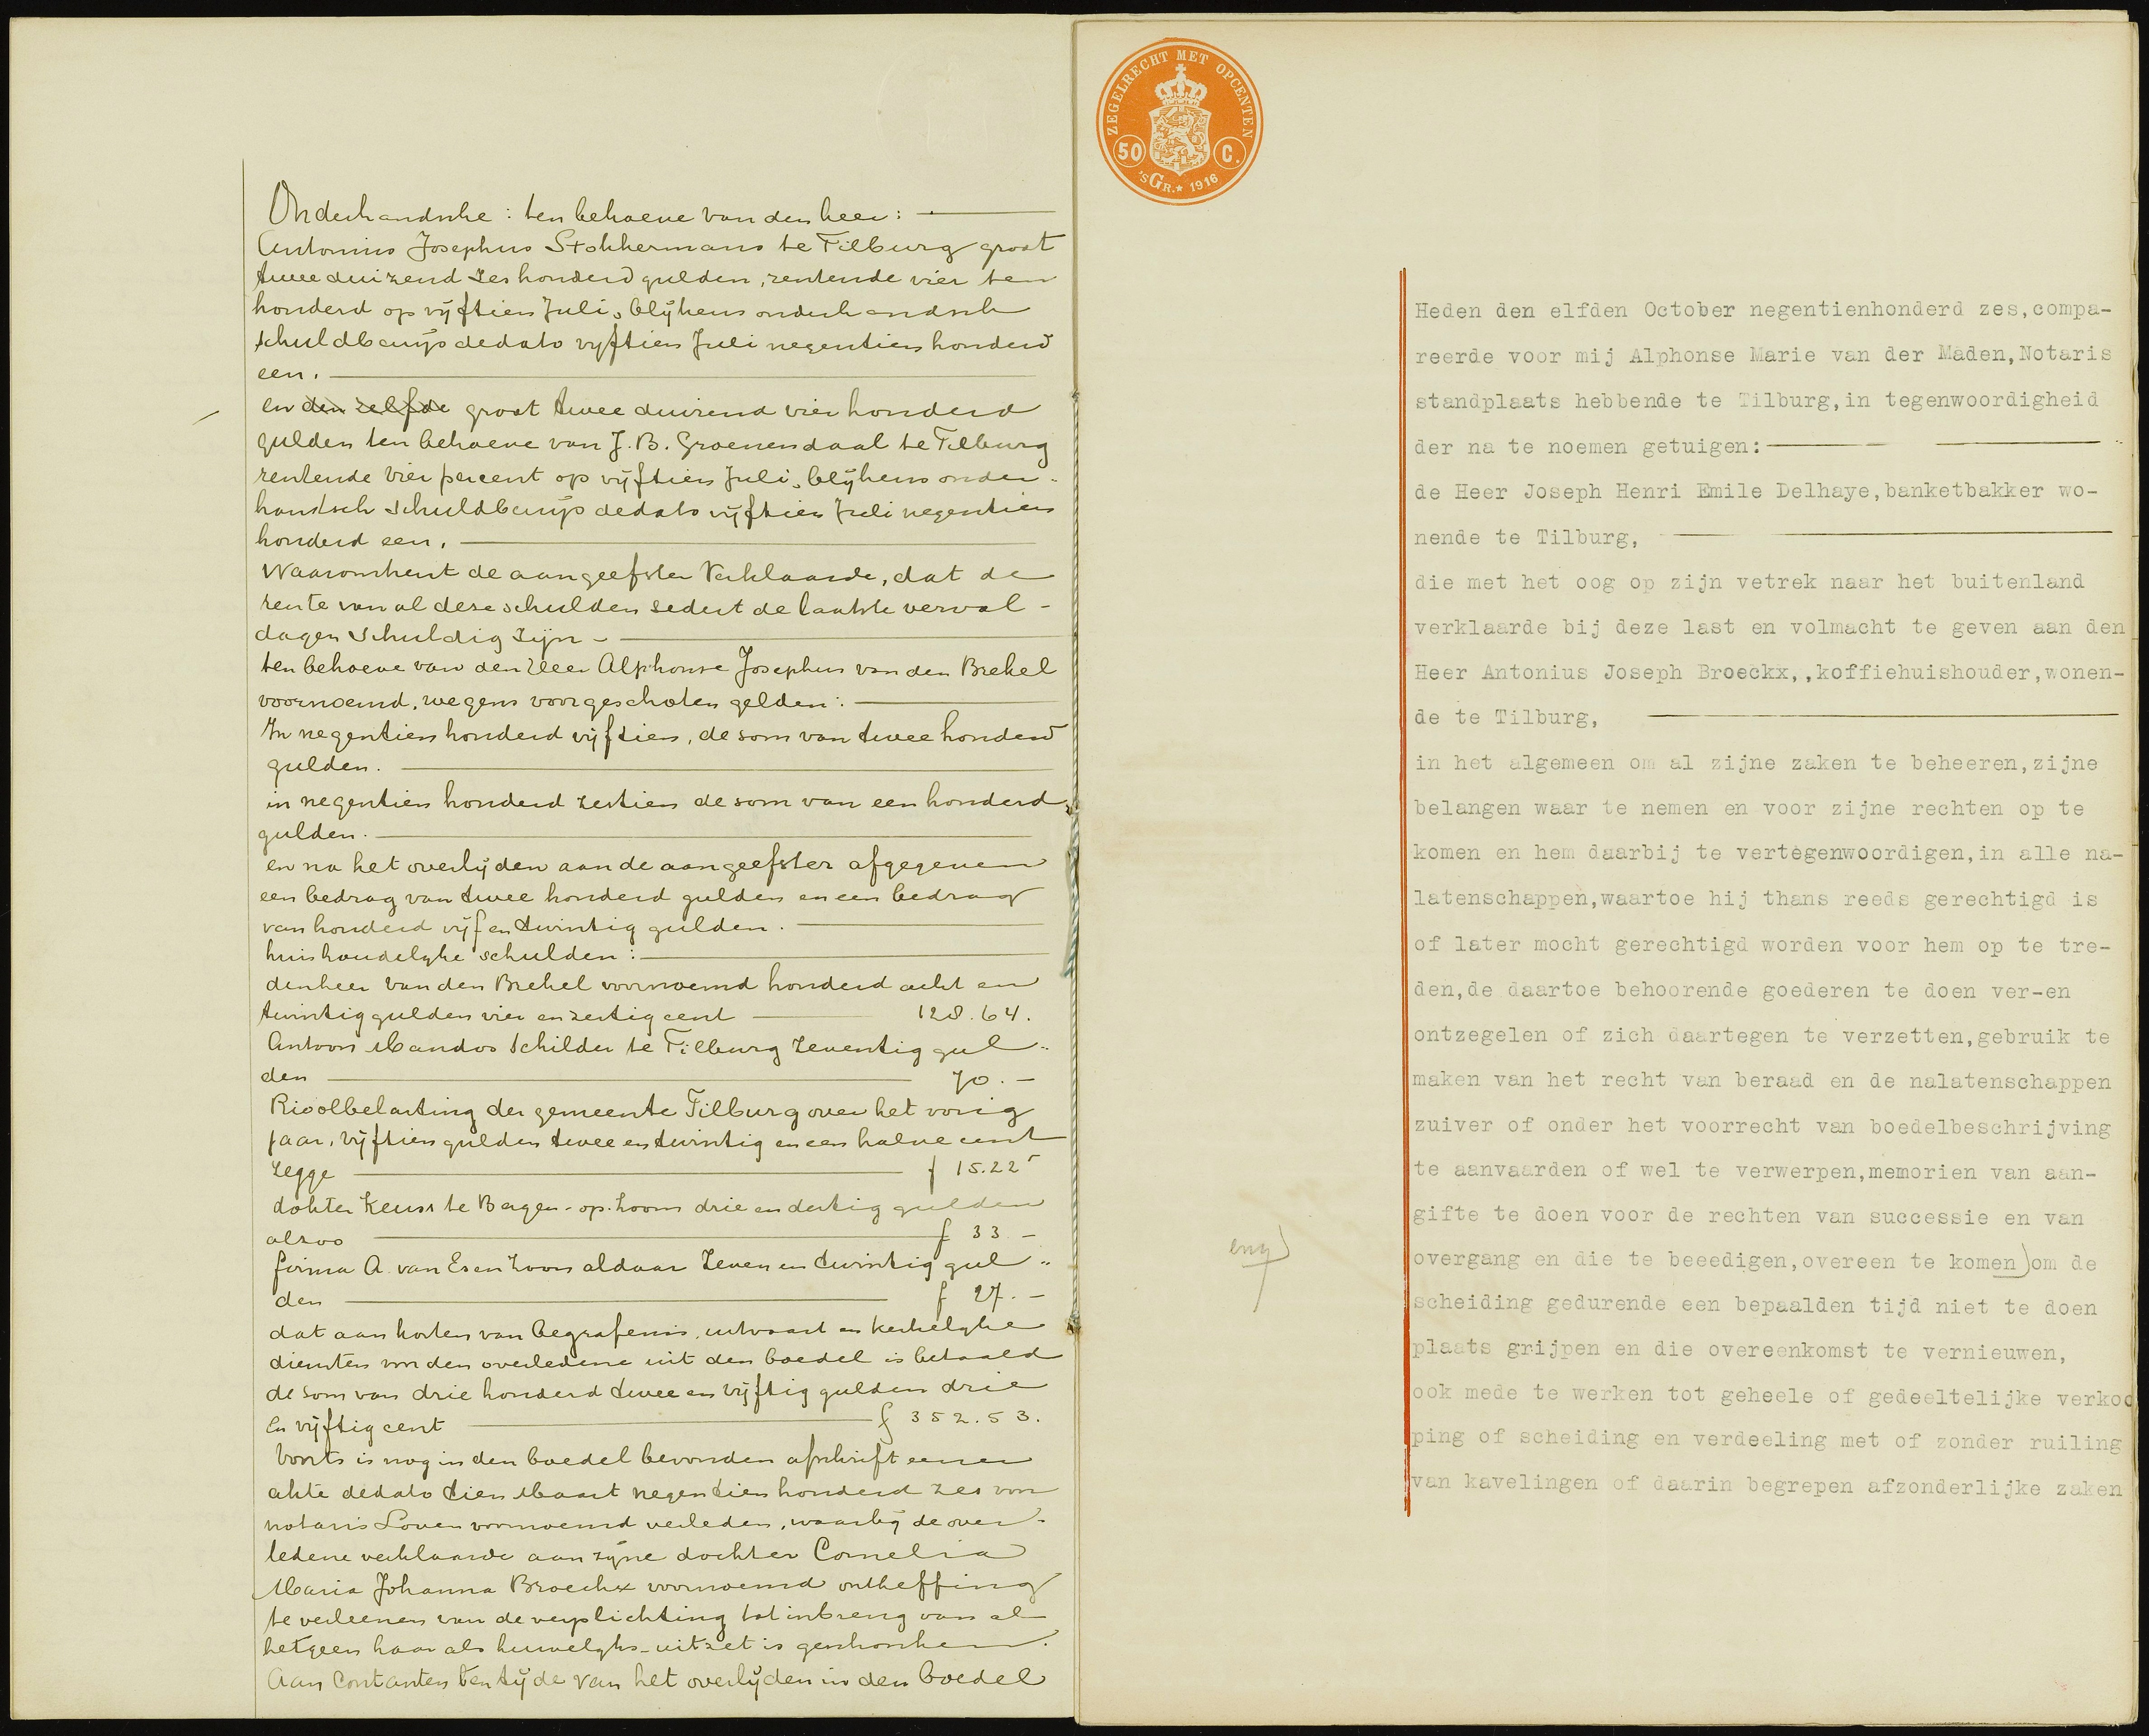 Onderhandsche: ten behoeve van den heer:
Antonius Josephus Stokkermans te Tilburg groot
twee duizend zes honderd gulden, rentende vier ten
honderd op vijftien Juli, blijkens onderhandsch
schuldbewijs dedato vijftien Juli negentien honderd
een.
en den zelfde groot twee duizend vier honderd
gulden ten behoeve van J. B. Groenendaal te Tilburg
rentende vier percent op vijftien Juli, blijkens onder-
handsch schuldbewijs dedato vijftien Juli negentien
honderd een.
Waaromtrent de aangeefster verklaarde, dat de
rente van al deze schulden sedert de laatste verval-
dagen schuldig zijn -
ten behoeve van den Heer Alphonse Josephus van den Brekel
voornoemd, wegens voorgeschoten gelden:
In negentien honderd vijftien, de som van twee honderd
gulden.
in negentien honderd zestien de som van een honderd
gulden.
en na het overlijden aan de aangeefster afgegeven
een bedrag van twee honderd gulden en een bedrag
van honderd vijf en twintig gulden.
huishoudelyke schulden:
den heer van den Brekel voornoemd honderd acht en
twintig gulden vier en zestig cent 128.64.
Antoon Mandos Schilder te Tilburg zeventig gul-
den 70.-
Rioolbelasting der gemeente Tilburg over het vorig
jaar, vijftien gulden twee en twintig en een halve cent
zegge f 15.22⁵
dokter Keuss te Bergen-op-Zoom drie en dertig gulden
alzoo f 33.-
firma A. van Es en Zoon aldaar zeven en twintig gul-
den f 27.-
dat aan kosten van begrafenis, uitvaart en kerkelyke
diensten voor den overledene uit den boedel is betaald
de som van drie honderd twee en vijftig gulden drie
en vijftig cent f 352.53.
Voorts is nog in den boedel bevonden afschrift eener
akte dedato tien Maart negentien honderd zes voor
notaris Loven voornoemd verleden, waarbij de over-
ledene verklaarde aan zijne dochter Cornelia
Maria Johanna Broeckx voornoemd ontheffing
te verleenen van de verplichting tot inbreng van al
hetgeen haar als huwelyks-uitzet is geschonken.
Aan Contanten ten tijde van het overlijden in den boedel
ZEGELRECHT MET OPCENTEN
50 C.
'sGr. * 1916
Heden den elfden October negentienhonderd zes, compa-
reerde voor mij Alphonse Marie van der Maden, Notaris
standplaats hebbende te Tilburg, in tegenwoordigheid
der na te noemen getuigen:
de Heer Joseph Henri Emile Delhaye, banketbakker wo-
nende te Tilburg,
die met het oog op zijn vetrek naar het buitenland
verklaarde bij deze last en volmacht te geven aan den
Heer Antonius Joseph Broeckx,,koffiehuishouder, wonen-
de te Tilburg,
in het algemeen om al zijne zaken te beheeren, zijne
belangen waar te nemen en voor zijne rechten op te
komen en hem daarbij te vertegenwoordigen, in alle na-
latenschappen, waartoe hij thans reeds gerechtigd is
of later mocht gerechtigd worden voor hem op te tre-
den, de daartoe behoorende goederen te doen ver-en
ontzegelen of zich daartegen te verzetten, gebruik te
maken van het recht van beraad en de nalatenschappen
zuiver of onder het voorrecht van boedelbeschrijving
te aanvaarden of wel te verwerpen, memorien van aan-
gifte te doen voor de rechten van successie en van
overgang en die te beeedigen, overeen te komen) om de
scheiding gedurende een bepaalden tijd niet te doen
plaats grijpen en die overeenkomst te vernieuwen,
ook mede te werken tot geheele of gedeeltelijke verkoo
ping of scheiding en verdeeling met of zonder ruiling
van kavelingen of daarin begrepen afzonderlijke zaken